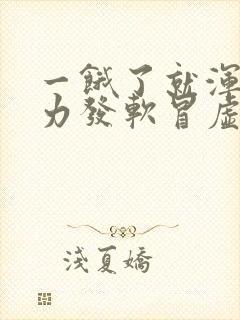 一餓了就渾
力發軟冒虛
淺夏嬌